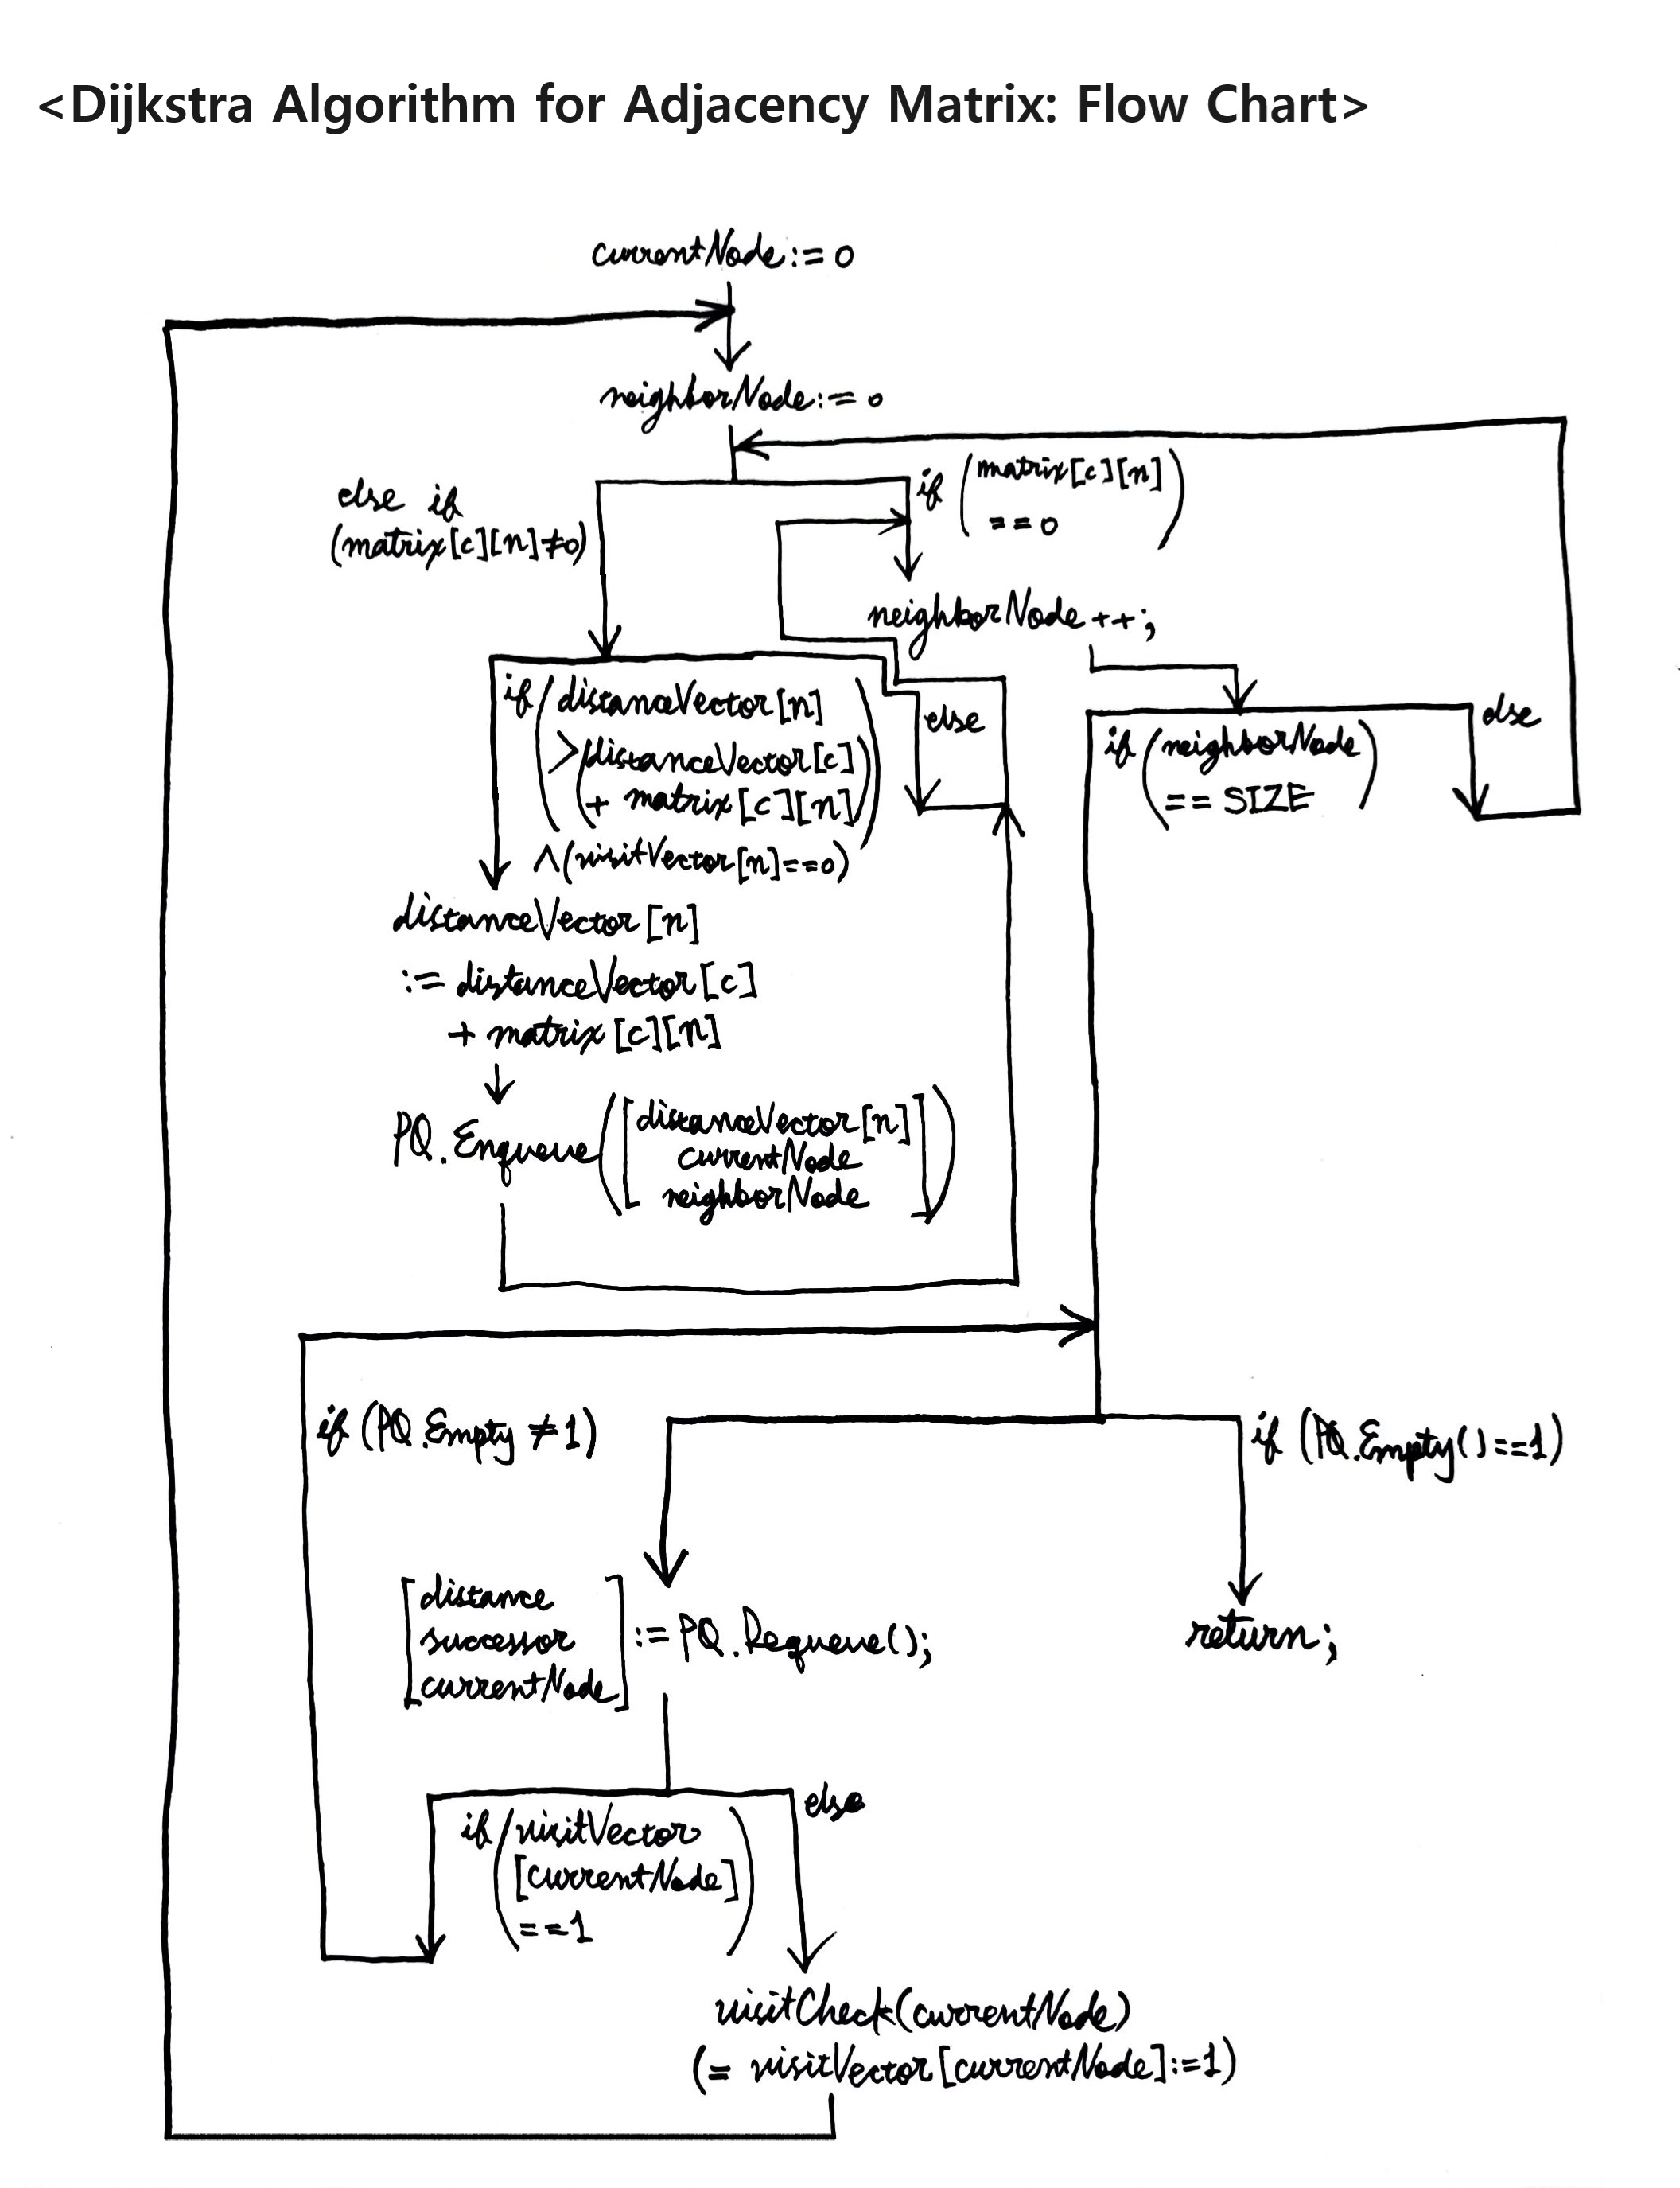 <Dijkstra Algorithm for Adjacency Matrix: Flow Chart>
currentNode := 0
neighborNode := 0
else if
(matrix[c][n]≠0)
if (matrix[c][n]
==0)
neighborNode ++;
if (distanceVector[n]
>(distanceVector[c]
+ matrix[c][n])
∧(visitVector[n]==0)
else
if (neighborNode
== SIZE)
else
distanceVector[n]
:= distanceVector[c]
+ matrix[c][n]
PQ.Enqueue([distanceVector[n]
currentNode
neighborNode])
if (PQ.Empty ≠ 1)
if (PQ.Empty()==1)
[distance
successor
currentNode] := PQ.Dequeue();
return;
if (visitVector
[currentNode]
==1)
else
visitCheck(currentNode)
(= visitVector[currentNode]:=1)